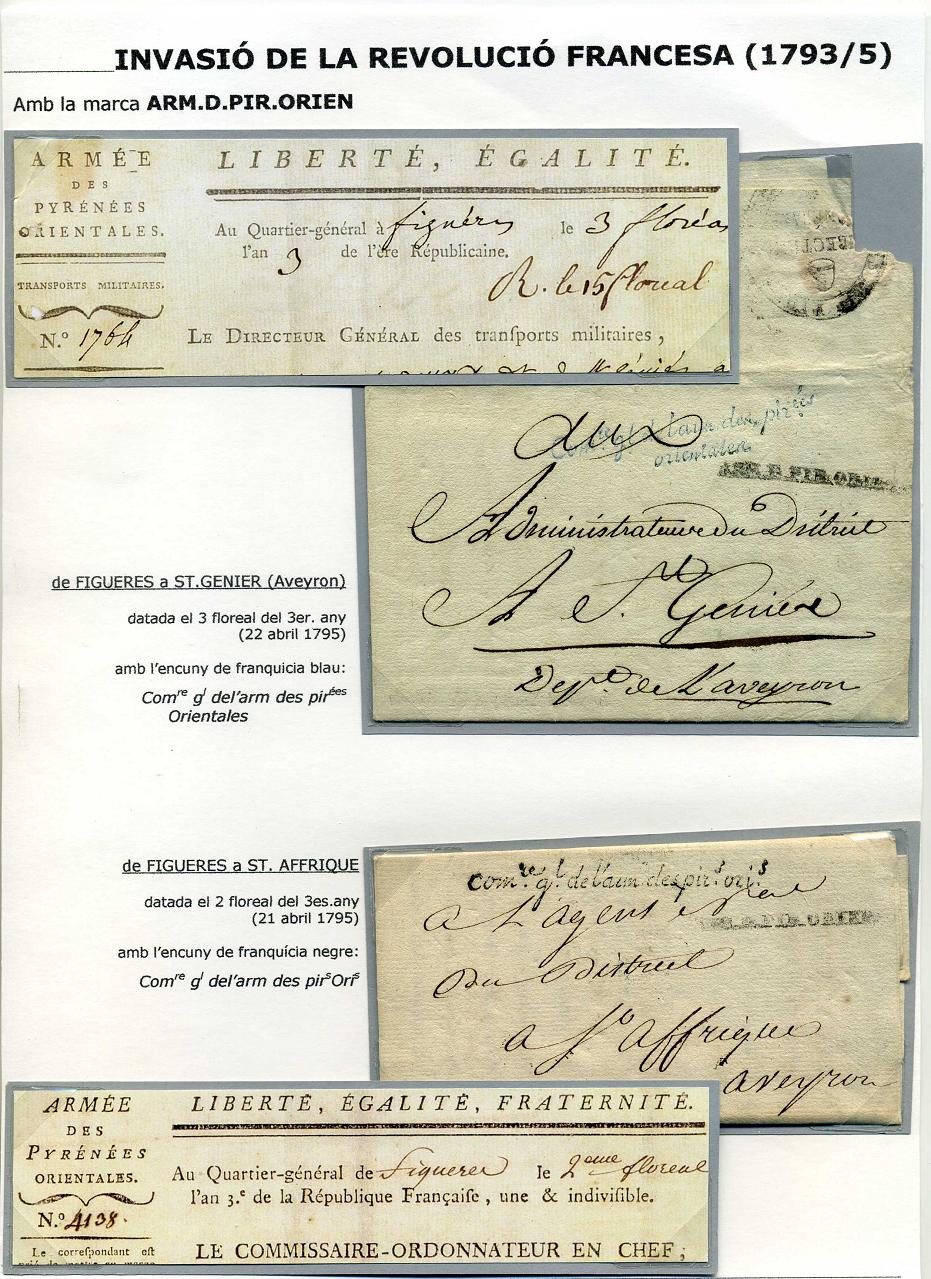 INVASIÓ DE LA REVOLUCIÓ FRANCESA (1793/5)
Amb la marca ARM.D.PIR.ORIEN
ARMÉE
DES
PYRÉNÉES
ORIENTALES.
TRANSPORTS MILITAIRES.
N.º 1764
LIBERTÉ, ÉGALITÉ.
Au Quartier-général à figuéres le 3 floréa
l'an 3 de l'ère Républicaine.
R. le 15 floreal
LE DIRECTEUR GÉNÉRAL des tranſports militaires,
aux
Com.re gl de l'arm. des pir.ées
orientales
ARM.D.PIR.ORIE
Administrateurs du District
A St. Geniéz
Dep.t de L'aveyron
de FIGUERES a ST.GENIER (Aveyron)
datada el 3 floreal del 3er. any
(22 abril 1795)
amb l'encuny de franquicia blau:
Comre gl del'arm des pirées
Orientales
de FIGUERES a ST. AFFRIQUE
datada el 2 floreal del 3es.any
(21 abril 1795)
amb l'encuny de franquícia negre:
Comre gl del'arm des pirsOris
Com.re gl. de l'arm des pir.s ori.s
a L'agent
PIR.ORIEN
du District
a St. affrique
aveyron
ARMÉE
DES
PYRÉNÉES
ORIENTALES.
N.º 4138.
Le correſpondant eſt
LIBERTÉ, ÉGALITÉ, FRATERNITÉ.
Au Quartier-général de Figueres le 2eme floreal
l'an 3.e de la République Françaiſe, une & indiviſible.
LE COMMISSAIRE-ORDONNATEUR EN CHEF,